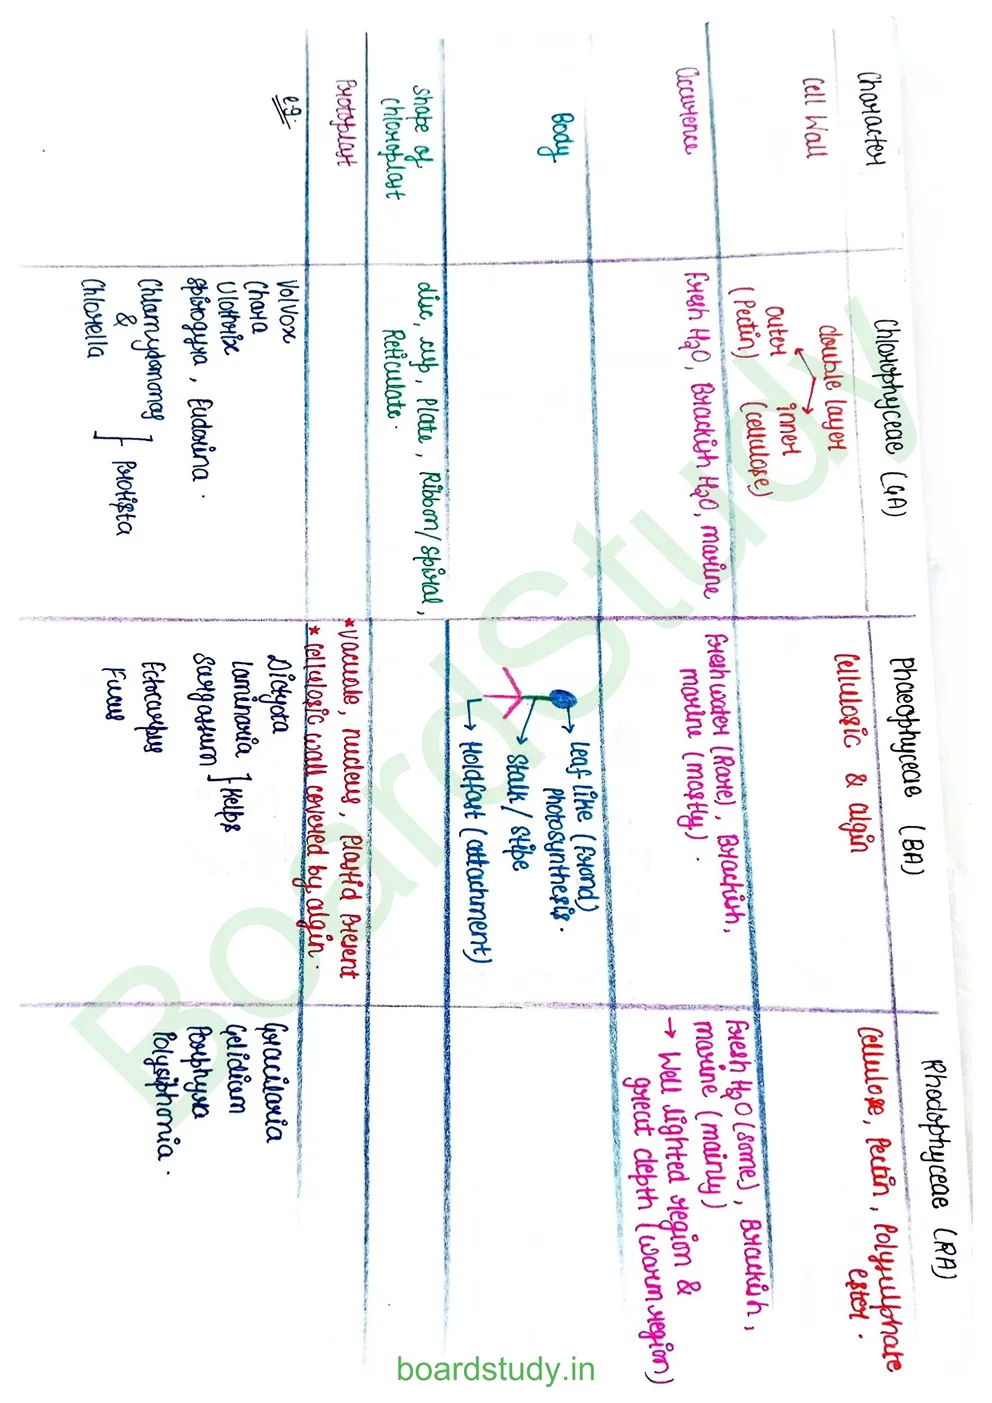 Character
Chlorophyceae (GA)
Phaeophyceae (BA)
Rhodophyceae (RA)
Cell Wall
double layer
outer
(Pectin)
inner
(cellulose)
Cellulosic & algin
Cellulose, Pectin, Polysulphate
ester.
Occurence
Fresh H2O, Brackish H2O, marine
Fresh water (Rare), Brackish,
marine (mostly).
Fresh H2O (some), Brackish,
marine (mainly)
→ Well lighted region &
great depth (warm region)
Body
→ leaf like (frond)
photosynthesis.
→ Stalk / Stipe
→ Holdfast (attachment)
Shape of
chloroplast
disc, cup, Plate, Ribbon/spiral,
Reticulate.
Protoplast
*Vacuole, nucleus, Plastid present
* cellulosic wall covered by algin.
e.g.
Volvox
Chara
Ulothrix
spirogyra, Eudorina.
Chlamydomonas
&
Chlorella
} Protista
Dictyota
Laminaria
Sargassum
} Kelps
Ectocarpus
Fucus
Gracilaria
Gelidium
Porphyra
Polysiphonia.
BoardStudy
boardstudy.in